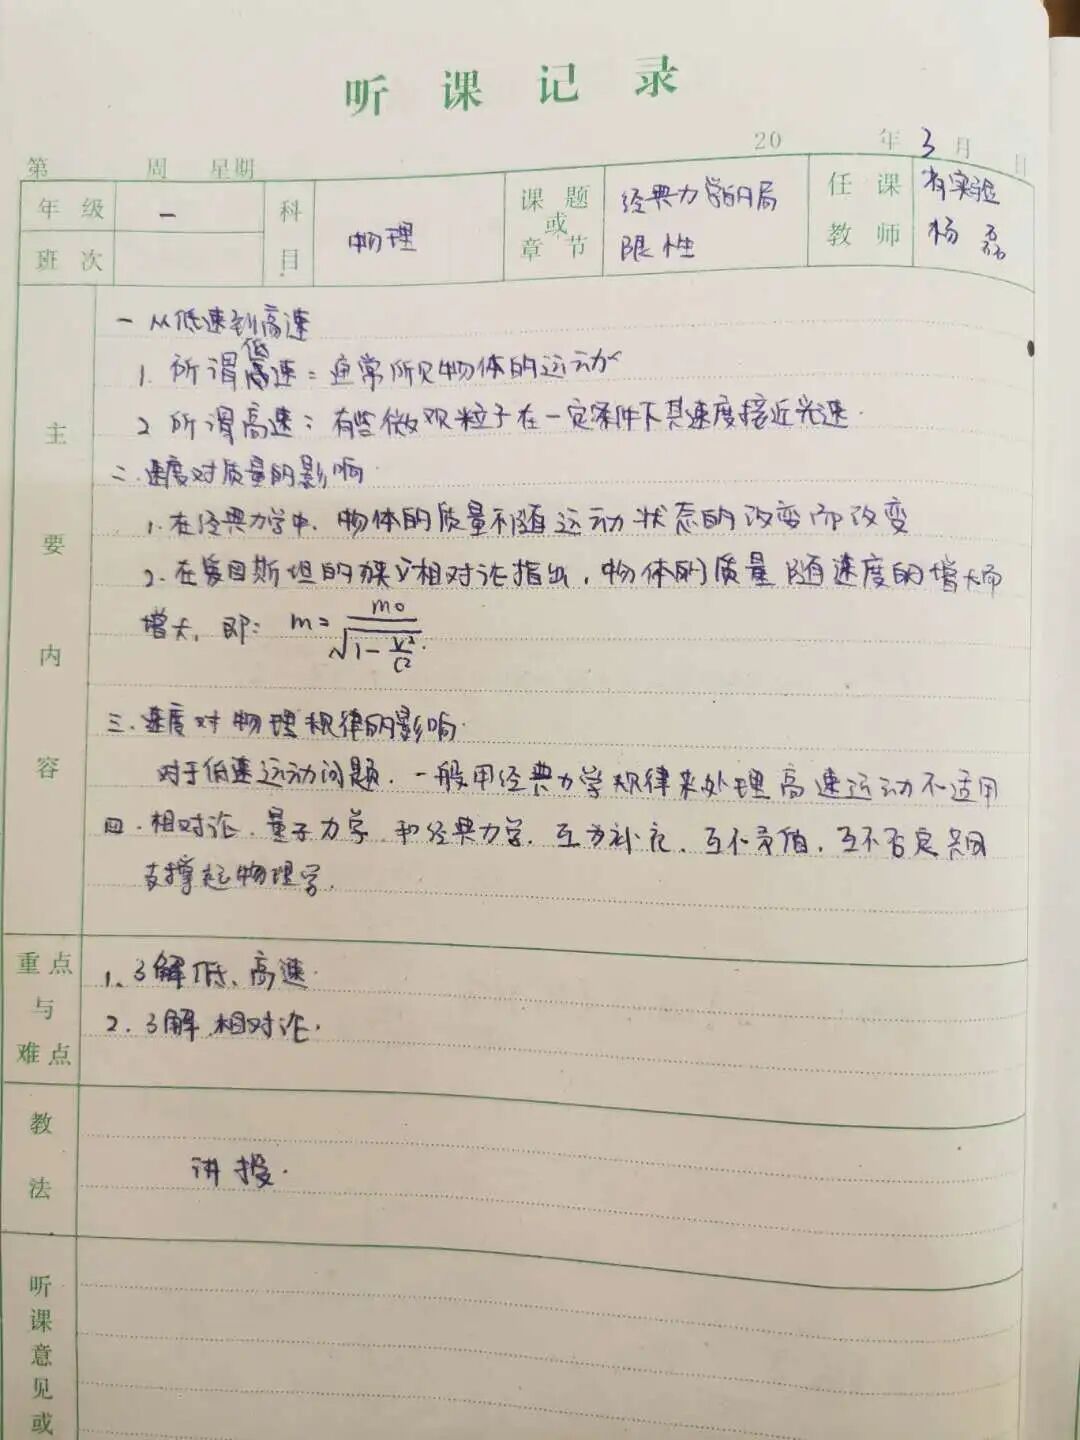 听课记录
第 周 星期 20 年 3 月 日
年级 一 科目 物理 课题或章节 经典力学的局限性 任课教师 省实验 杨磊
班次
主要内容
一 从低速到高速
1. 所谓低速：通常所见物体的运动
2 所谓高速：有些微观粒子在一定条件下其速度接近光速.
二.速度对质量的影响.
1.在经典力学中，物体的质量不随运动状态的改变而改变
2.在爱因斯坦的狭义相对论指出，物体的质量随速度的增大而
增大，即：m=m0/√(1-v²/c²).
三.速度对物理规律的影响.
对于低速运动问题，一般用经典力学规律来处理 高速运动不适用
四.相对论、量子力学 和经典力学，互为补充，互不矛盾，互不否定 共同
支撑起物理学.
重点与难点
1、了解低、高速.
2.了解.相对论.
教法
讲授.
听课意见或